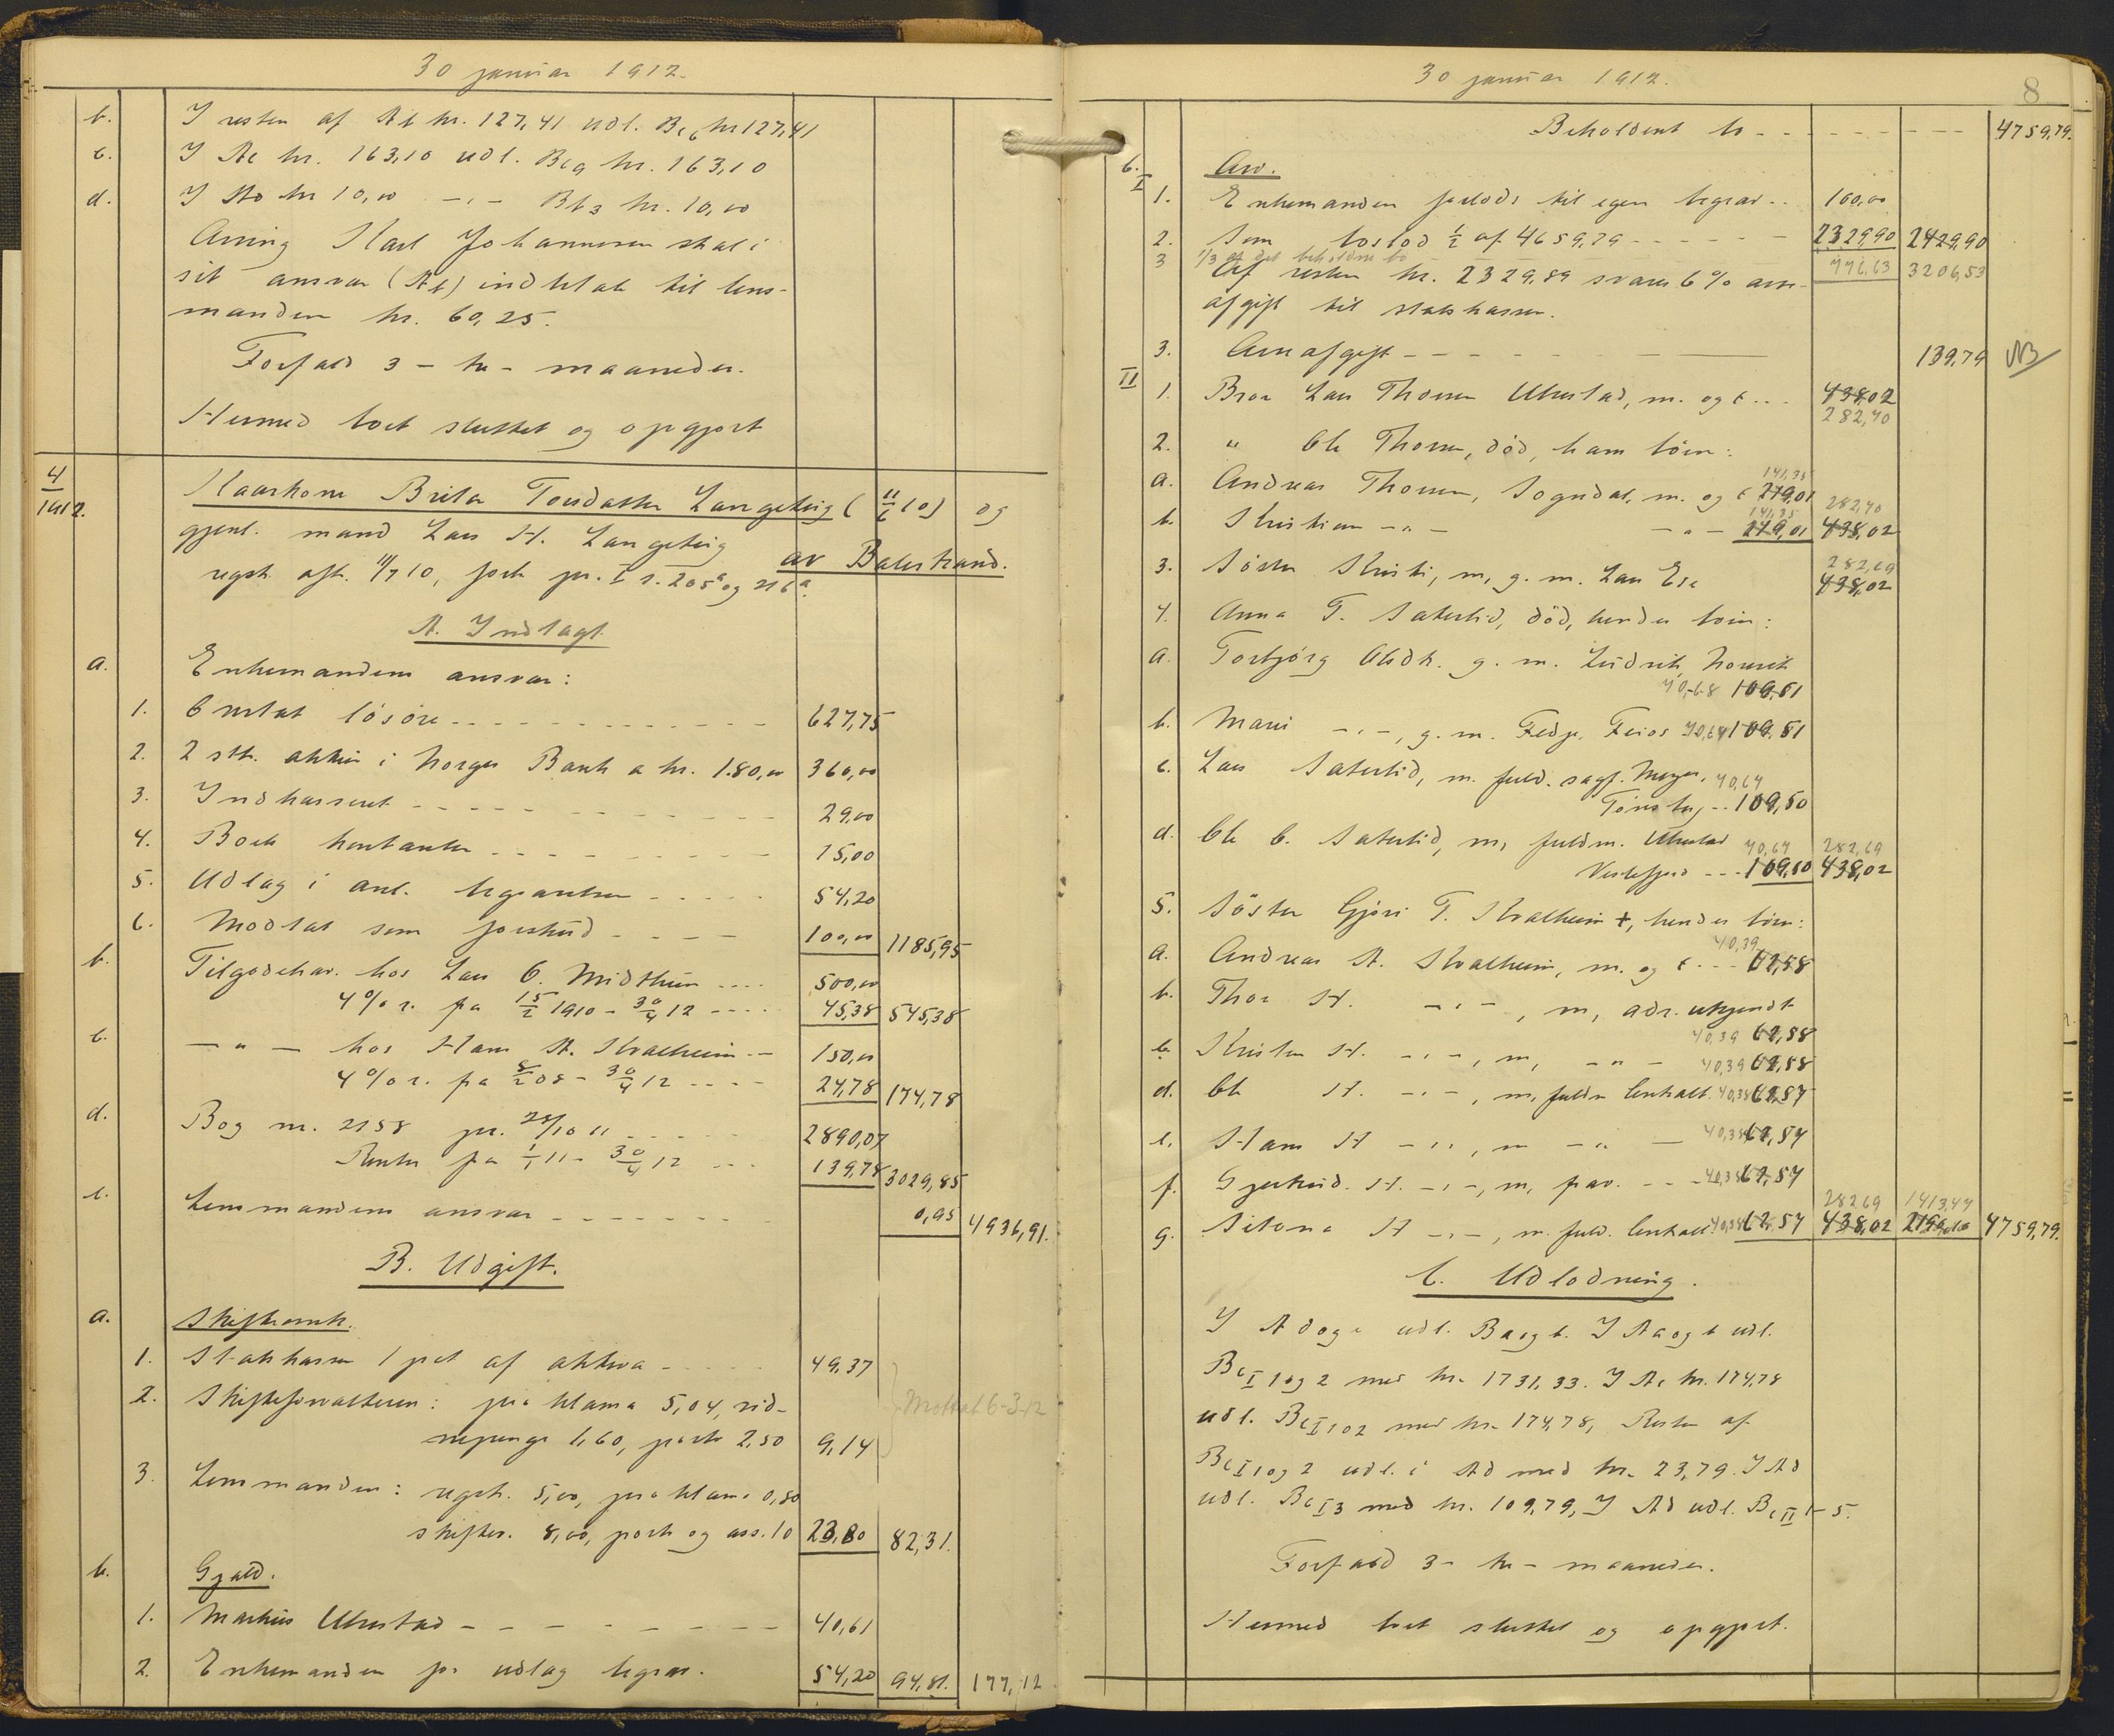 30 januar 1912.
b. I resten af Ab kr. 127,41 udl. Bc6 kr 127,41
c. I Ac kr. 163,10 udl. Bc9 kr. 163,10
d. I Ad kr 10,00 -"- Bb3 kr. 10,00
Arving Karl Johannesen skal i
sit ansvar (Ab) indbetale til lens-
manden kr. 60,25.
Forfald 3 - tre - maaneder.
Hermed boet sluttet og opgjort
4/1912. Kaarkone Brita Torsdatter Langeteig ( 11/6 10) og
gjenl. mand Lars H. Langeteig av Balestrand.
regstr. aft. 11/7 10, forh. pr. I s. 205a og 216a.
A. Indtægt.
a. Enkemandens ansvar:
1. Omtat løsøre - - - 627,75
2. 2 stk. aktier i Norges Bank a kr. 180,00 360,00
3. Indkasseret - - - 29,00
4. Boets kontanter - - - 15,00
5. Udlæg i anl. begravelsen - - - 54,20
6. Modtat som forskud - - - 100,00 1185,95
b. Tilgodehav. hos Lars O. Midthun .... 500,00
4% r. fra 15/2 1910 - 30/4 12 .... 45,38 545,38
c. - " - hos Hans A. Kvalheim - - 150,00
4% r. fra 8/2 08 - 30/4 12 .... 24,78 174,78
d. Bog nr. 2158 pr. 28/10 11 - - - 2890,07
Renter fra 1/1 11 - 30/4 12 ... 139,78 3029,85
e. Lensmandens ansvar - - - 0,95 4936,91.
B. Udgift.
a. Skifteomk.
1. Statskassen 1 pct af aktiva - - - 49,37
2. Skifteforvalteren: proklama 5,04, vid-
nepenge 1,60, porto 2,50 9,14
Mottat 6-3-12
3. Lensmanden: regstr. 5,00, proklama 0,80
skiftev. 8,00, porto og ass. 10 23,80 82,31.
b. Gjæld.
1. Markus Ulvestad - - - 40,61
2. Enkemanden for udlæg begrav. 54,20 94,81. 177,12
30 januar 1912.
8
Beholdent bo - - - 4759,79.
c. Arv.
I
1. Enkemanden forlods til egen begrav. .. 100,00
2. Som boslod 1/2 af 4659,79 - - - 2329,90 2429,90
3 1/3 af det beholdne bo 776,63 3206,53
Af resten kr. 2329,89 svares 6% arve-
afgift til statskassen.
3. Arveafgift - - - 139,79 NB
II
1. Bror Lars Thorsen Ulvestad, m. og t. .. 438,02
282,70
2. " Ole Thorsen, død, hans børn:
141,35
a. Andreas Thorsen, Sogndal, m. og t 219,01 282,70
141,35
b. Kristian -"- -"- 219,01 438,02
282,69
3. Søster Kristi, m, g. m. Lars Ese 438,02
4. Anna T. Sæterlid, død, hendes børn:
a. Torbjørg Olsdtr. g. m. Ludvik Nornes
70,68 109,51
b. Mari -"-, g. m. Fedje, Feios 70,67 109,51
c. Lars Sæterlid, m. fuld. sagf. Meyer, 70,67
Tønsberg - - 109,50
d. Ole O. Sæterlid, m, fuldm. Ulvestad 70,67 282,69
Vestefjord - - - 109,50 438,02
5. Søster Gjøri T. Kvalheim †, hendes børn:
40,39
a. Andreas A. Kvalheim, m. og t. - - - 62,58
b. Thor H. -"-, m, adr. ukjendt
40,39 62,58
c. Kristen H. -"-, m, -"- 40,39 62,58
d. Ole H. -"-, m, fuldm 40,38 62,57
e. Hans H -"-, m -"- 40,38 62,57
f. Gjertrud. H. -"-, m, frav. - - 40,38 62,57
282,69 1413,47
g. H -"-, m. fuld. 40,38 62,57 438,02 4759,79.
C. Udlodning.
I Ad og e udl. Ba og b. I Aa og b udl.
BcI 1 og 2 med kr. 1731,33. I Ac kr. 174,78
udl. BcI 1 o 2 med kr. 174,78, Resten af
BcI 1 og 2 udl. i Ad med kr. 23,79. I Ad
udl. BcI 3 med kr. 109,79, I Ad udl. BcII 1-5.
Forfald 3 - tre - maaneder.
Hermed boet sluttet og opgjort.